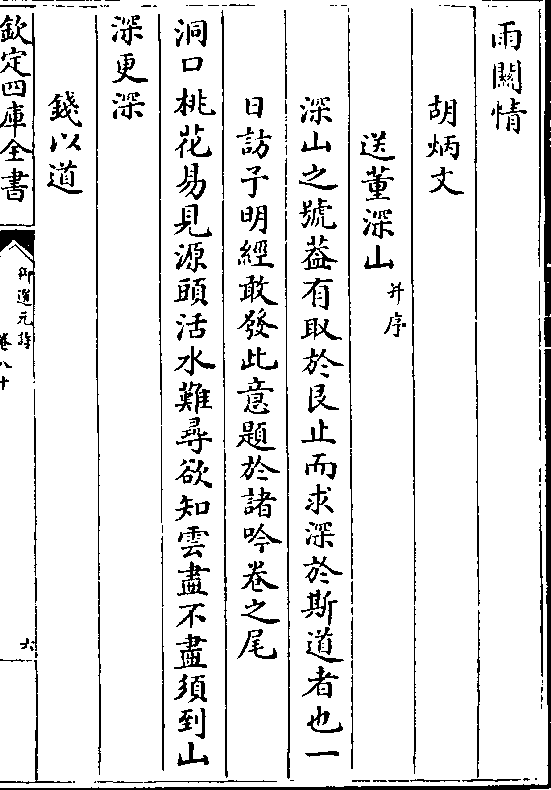 雨關情
胡炳文
送董深山并序
深山之號葢有取於艮止而求深於斯道者也一
日訪予明經敢發此意題於諸吟卷之尾
洞口桃花易見源頭活水難尋欲知雲盡不盡須到山
深更深
錢以道
欽定四庫全書
御選元詩
卷八十
六